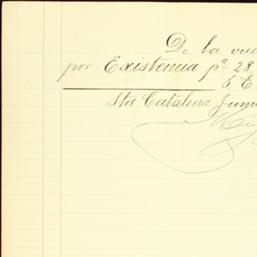 De la vue
por Existencia pª 28
S E
Sta Catalina Juni